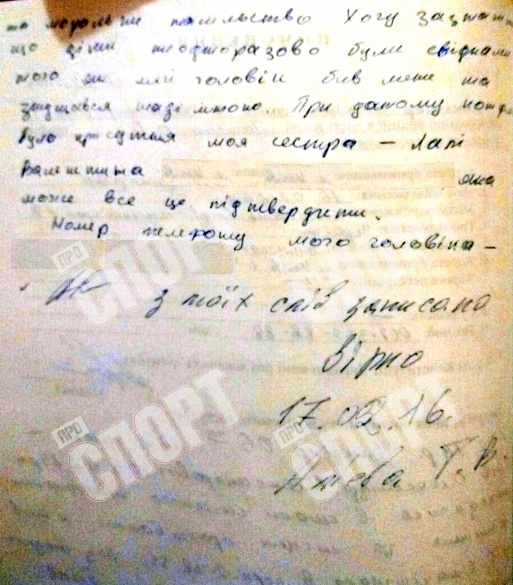 та моральне насильство. Хочу зазначити
що діти неодноразово були свідками
того як мій чоловік бив мене та
знущався наді мною. При даному
була присутня моя сестра –
Валентина яка
може все це підтвердити.
Номер телефону мого чоловіка –
З моїх слів записано
вірно
17.08.16.
Т.В.
ПРО
СПОРТ
ПРО
СПОРТ
ПРО
СПОРТ